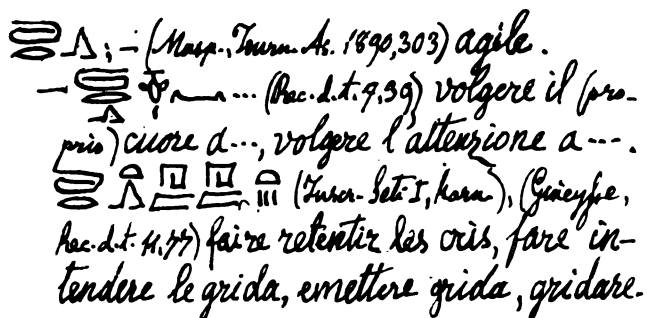 ; — (Masp., Journ. As. 1890, 303) agile.
— ... (Rec. d. t. 9, 39) volgere il (pro-
prio) cuore a..., volgere l'attenzione a ....
(Inscr. Seti I, Karn.), (Guieysse,
Rec. d. t. 11, 77) faire retentir les cris, fare in-
tendere le grida, emettere grida, gridare.